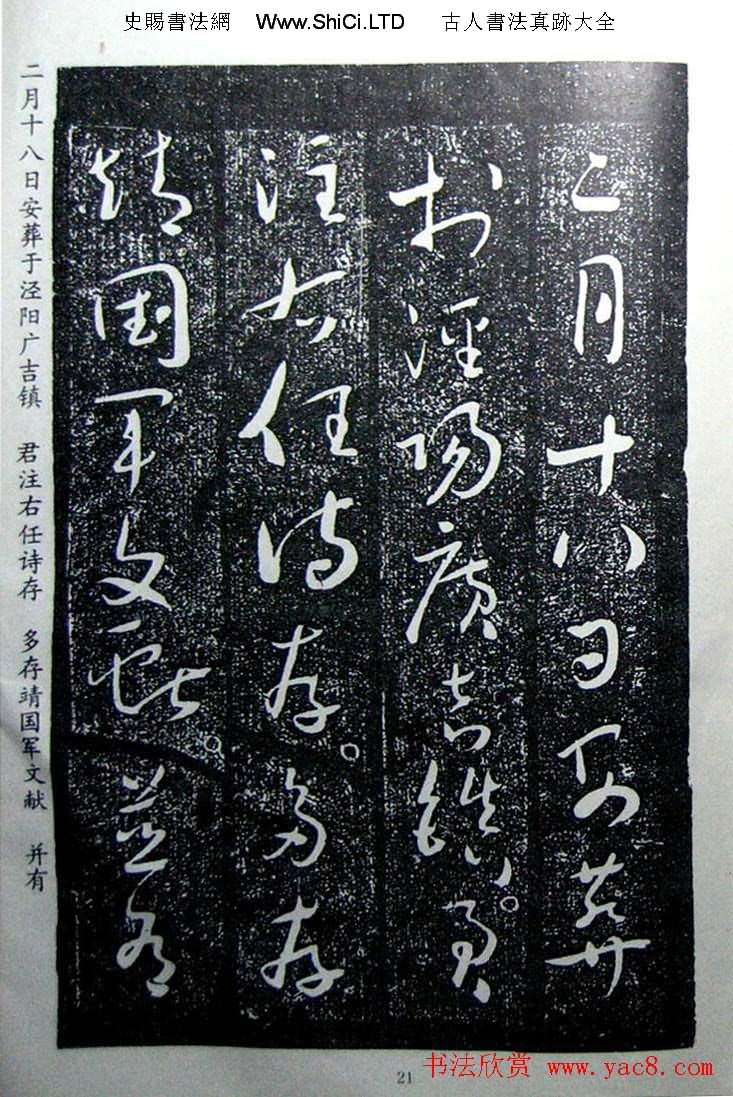 史賜書法網 Www.ShiCi.LTD 古人書法真跡大全
二月十八日安葬
於涇陽廣吉鎮。君
注右任诗存。多存
靖國军文獻。並有
二月十八日安葬于泾阳广吉镇 君注右任诗存 多存靖国军文献 并有
21
书法欣赏 www.yac8.com